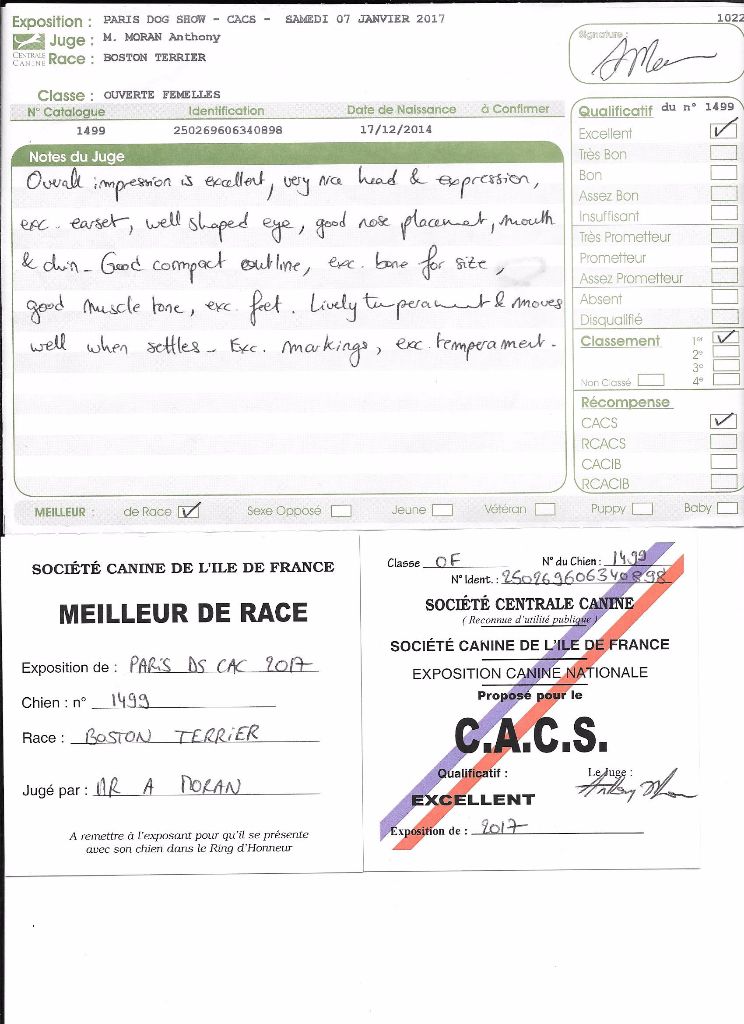 Exposition : PARIS DOG SHOW - CACS - SAMEDI 07 JANVIER 2017
1022
Juge : M. MORAN Anthony
CENTRALE CANINE
Race : BOSTON TERRIER
Signature :
Classe : OUVERTE FEMELLES
N° Catalogue Identification Date de Naissance à Confirmer
1499 250269606340898 17/12/2014
Notes du Juge
Overall impression is excellent, very nice head & expression,
exc. earset, well shaped eye, good nose placement, mouth
& chin - Good compact outline, exc. bone for size,
good muscle tone, exc. feet. Lively temperament & moves
well when settles - Exc. markings, exc. temperament.
Qualificatif du n° 1499
Excellent
Très Bon
Bon
Assez Bon
Insuffisant
Très Prometteur
Prometteur
Assez Prometteur
Absent
Disqualifié
Classement 1er
2e
3e
Non Classé 4e
Récompense
CACS
RCACS
CACIB
RCACIB
MEILLEUR : de Race Sexe Opposé Jeune Vétéran Puppy Baby
SOCIÉTÉ CANINE DE L'ILE DE FRANCE
MEILLEUR DE RACE
Exposition de : PARIS DS CAC 2017
Chien : n° 1499
Race : BOSTON TERRIER
Jugé par : MR A MORAN
A remettre à l'exposant pour qu'il se présente
avec son chien dans le Ring d'Honneur
Classe OF N° du Chien : 1499
N° Ident. : 250269606340898
SOCIÉTÉ CENTRALE CANINE
( Reconnue d'utilité publique )
SOCIÉTÉ CANINE DE L'ILE DE FRANCE
EXPOSITION CANINE NATIONALE
Proposé pour le
C.A.C.S.
Qualificatif : Le Juge :
EXCELLENT Anthony Moran
Exposition de : 2017